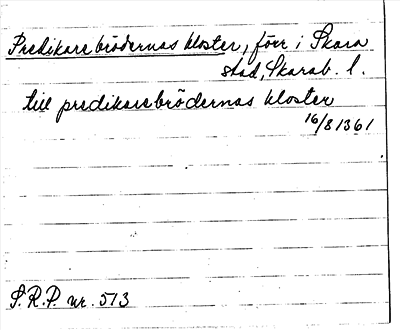 Predikarebrödernas kloster, förr i Skara
stad, Skarab. l.
till predikarebrödernas kloster
16/8 1361
S.R.P. nr. 513